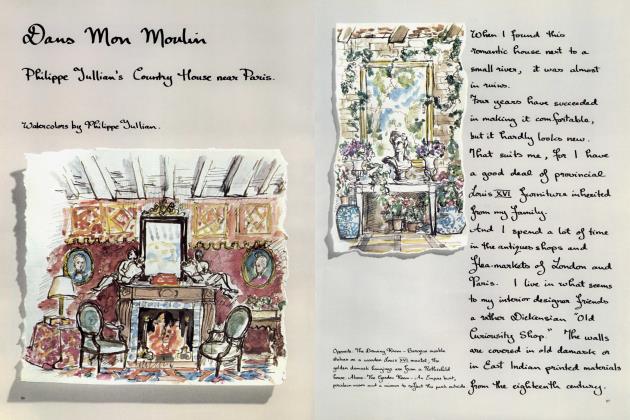 Dans Mon Moulin
Philippe Jullian's Country House near Paris.
Watercolors by Philippe Jullian.
When I found this
romantic house next to a
small river, it was almost
in ruins.
Four years have succeeded
in making it comfortable,
but it hardly looks new.
That suits me, for I have
a good deal of provincial
Louis XVI furniture inherited
from my family.
And I spend a lot of time
in the antiques shops and
flea-markets of London and
Paris. I live in what seems
to my interior designer friends
a rather Dickensian "Old
Curiosity Shop." The walls
are covered in old damask or
in East Indian printed materials
from the eighteenth century.
Opposite: The Drawing Room - Baroque marble
statues on a wooden Louis XVI mantel, the
golden damask hangings are from a Rothschild
house. Above: The Garden Room - An Empire bust,
porcelain vases and a mirror to reflect the park outside.